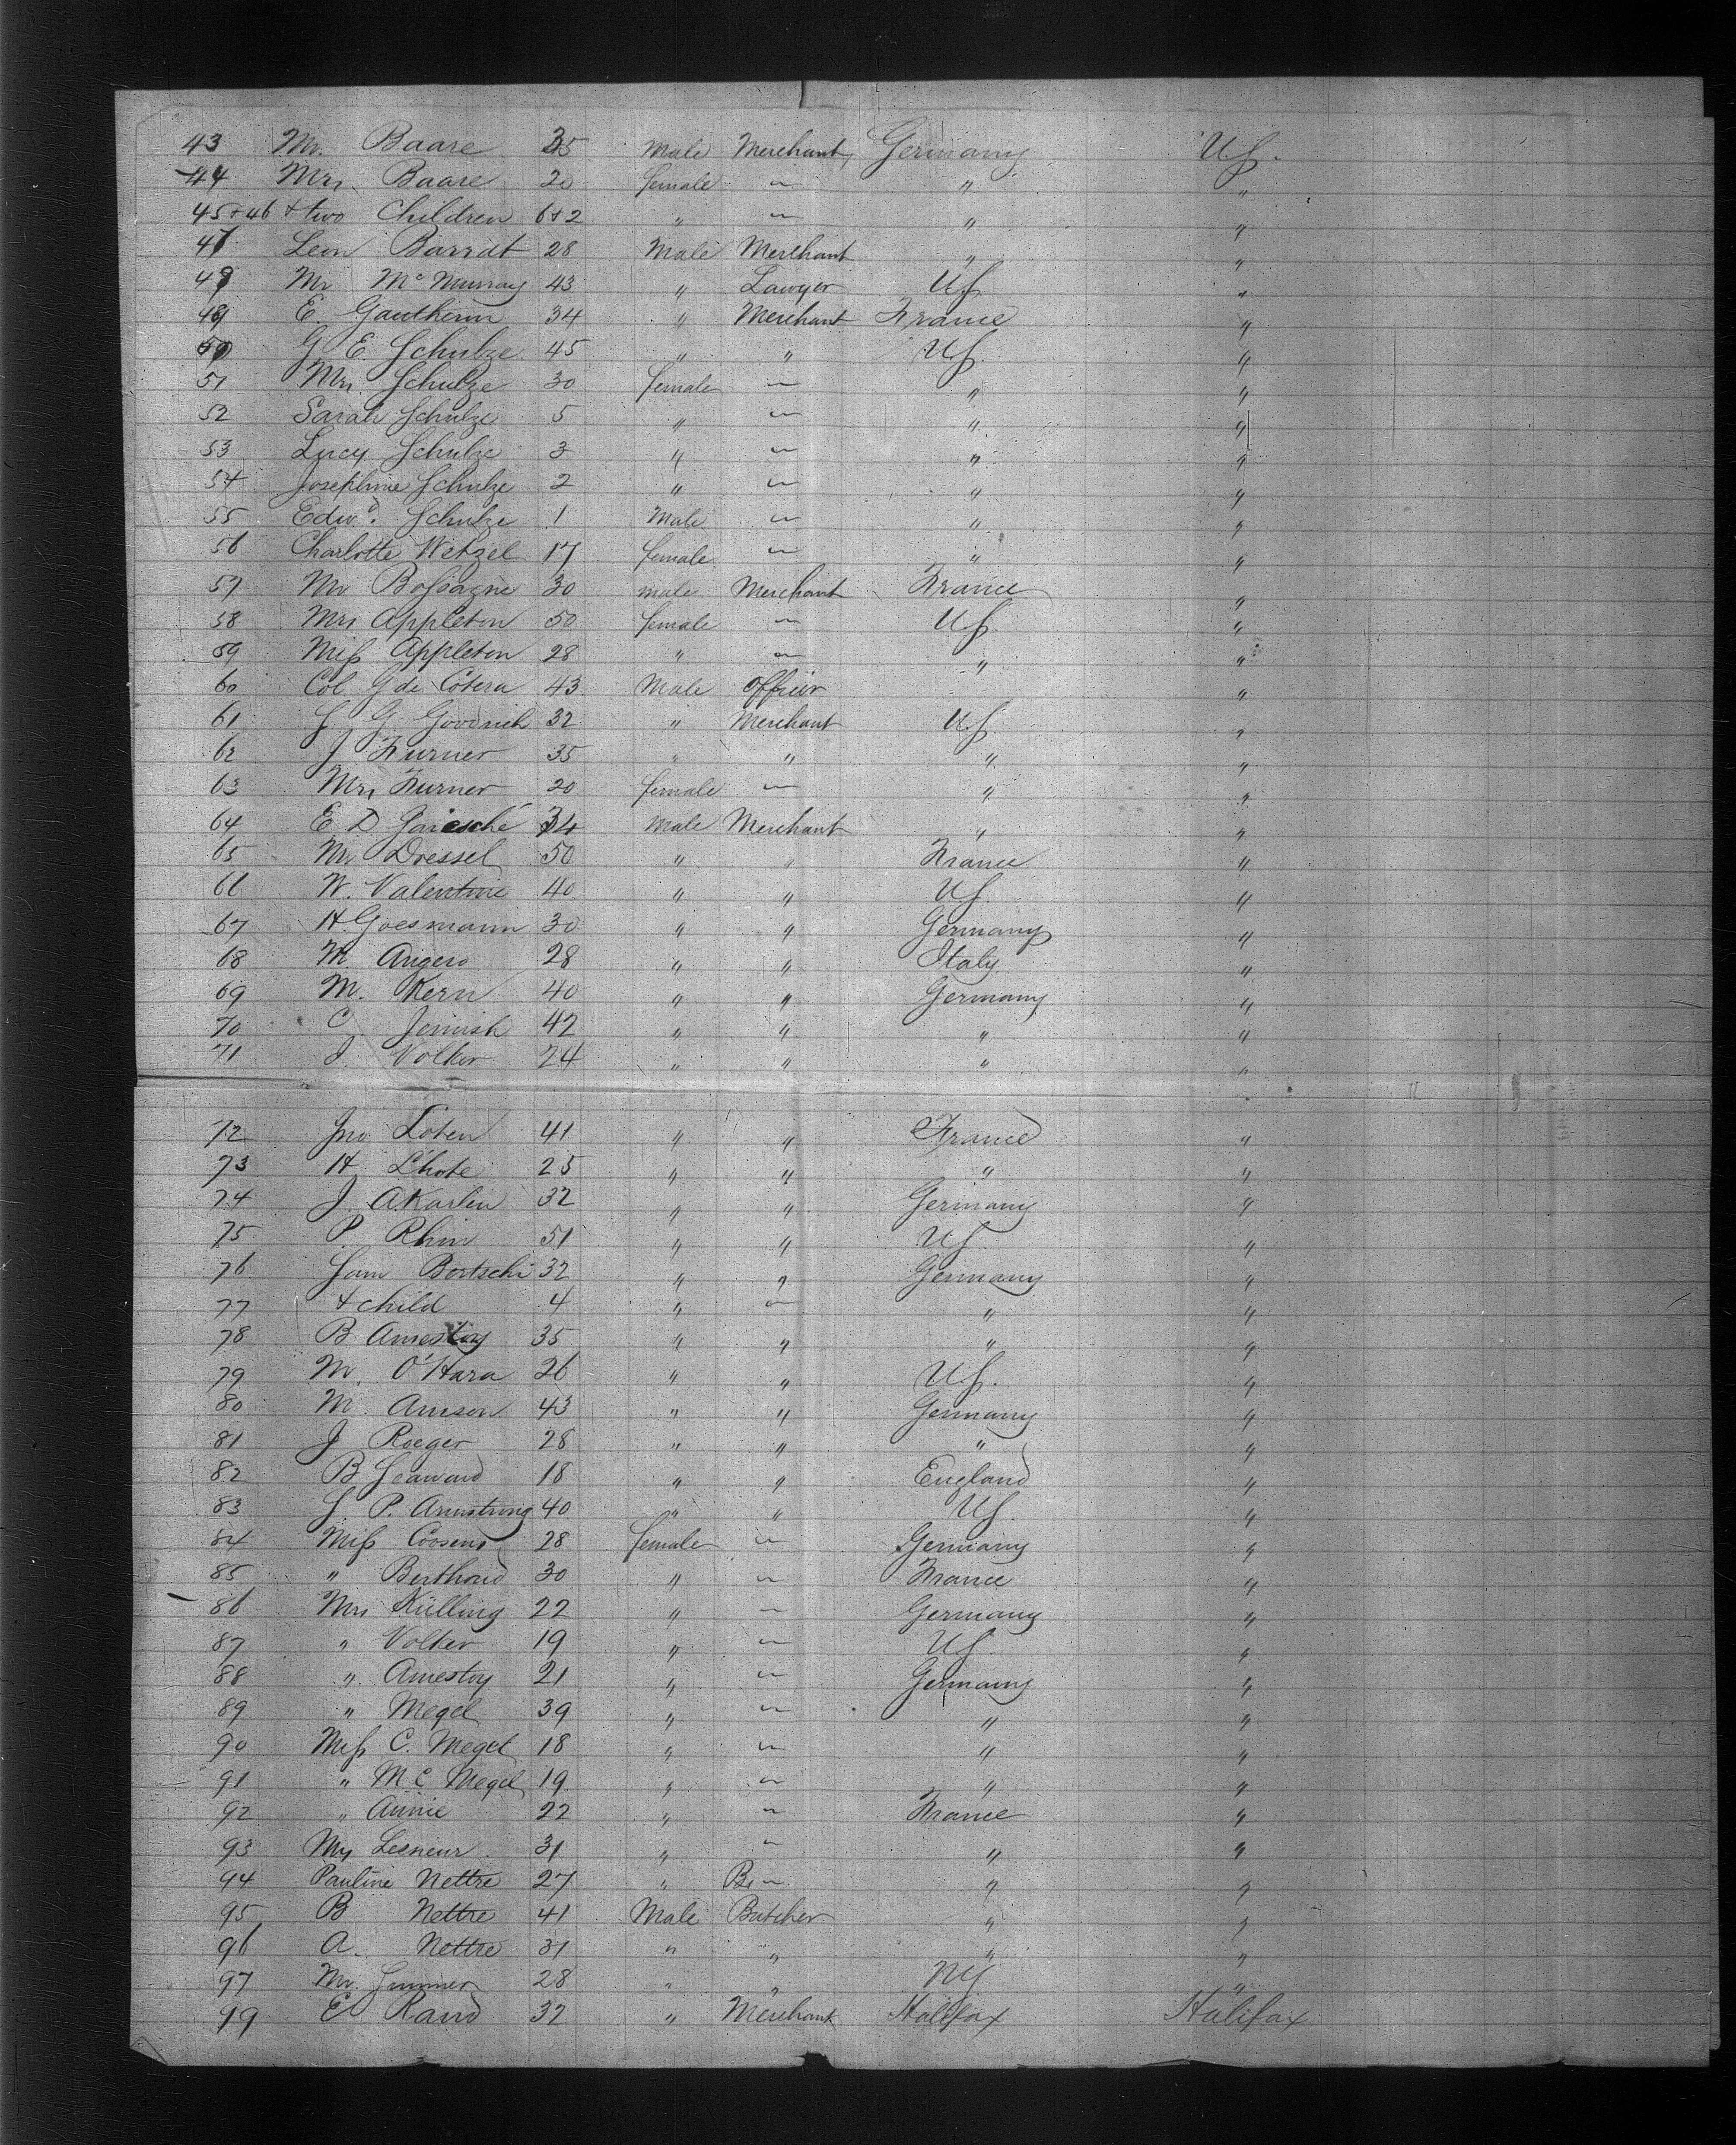 43 Mr. Baare 35 Male Merchant Germany U.S.
44 Mrs. Baare 20 female — " "
45+46 + two Children 6+2 " — " "
47 Leon Barrat 28 Male Merchant " "
48 Mr McMurray 43 " Lawyer U.S. "
49 E. Gautherin 34 " Merchant France "
50 G. E. Schulze 45 " " U.S. "
51 Mrs Schulze 30 female — " "
52 Sarah Schulze 5 " — " "
53 Lucy Schulze 3 " — " "
54 Josephine Schulze 2 " — " "
55 Edwd. Schulze 1 Male — " "
56 Charlotte Wetzel 17 female — " "
57 Mr Bossagne 30 male Merchant France "
58 Mrs Appleton 50 female — U.S. "
59 Miss Appleton 28 " — " "
60 Col G de Cotera 43 Male Officer "
61 S. G. Goodrich 32 " Merchant U.S. "
62 J Furner 35 " " " "
63 Mrs Furner 20 female — " "
64 E. D Garesché 34 male Merchant " "
65 Mr Dressel 50 " " France "
66 W. Valentine 40 " " U.S. "
67 H. Goesmann 30 " " Germany "
68 M Angero 28 " " Italy "
69 M. Kern 40 " " Germany "
70 C. Jenish 42 " " " "
71 J. Volker 24 " " " "
72 Jno Loten 41 " " France "
73 H. L'hote 25 " " " "
74 J. A Karlen 32 " " Germany "
75 P. Rhin 51 " " U.S. "
76 Sam Bertschi 32 " " Germany "
77 + child 4 " — " "
78 B Amestoy 35 " " " "
79 M. O'Hara 26 " " U.S. "
80 M. Amson 43 " " Germany "
81 J Roeger 28 " " " "
82 B Seaward 18 " " England "
83 S. P. Armstrong 40 " " U.S. "
84 Miss Coosens 28 female — Germany "
85 " Berthoud 30 " — France "
86 Mrs Külling 22 " — Germany "
87 " Volker 19 " — U.S. "
88 " Amestoy 21 " — Germany "
89 " Megel 39 " — " "
90 Miss C. Megel 18 " — " "
91 " M. C Megel 19 " — " "
92 " Annie 22 " — France "
93 My Lesneur 31 " — " "
94 Pauline Nettre 27 " — " "
95 B Nettre 41 Male Butcher " "
96 A. Nettre 31 " " " "
97 Mr. 28 " " NY "
99 E Rand 32 " Merchant Halifax Halifax